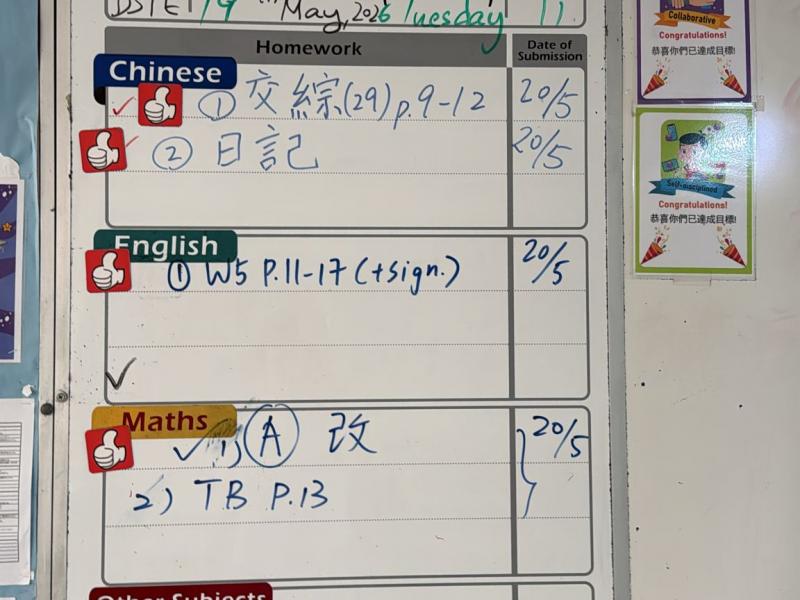 DATE: 19 May, 2026 Tuesday
Homework
Date of Submission
Chinese
① 交 綜(29) p.9-12 20/5
② 日記 20/5
English
① W5 P.11-17 (+sign.) 20/5
Maths
1) Ⓐ 改 20/5
2) TB P.13
Other Subjects
Collaborative
Congratulations!
恭喜你們已達成目標!
Self-disciplined
Congratulations!
恭喜你們已達成目標!